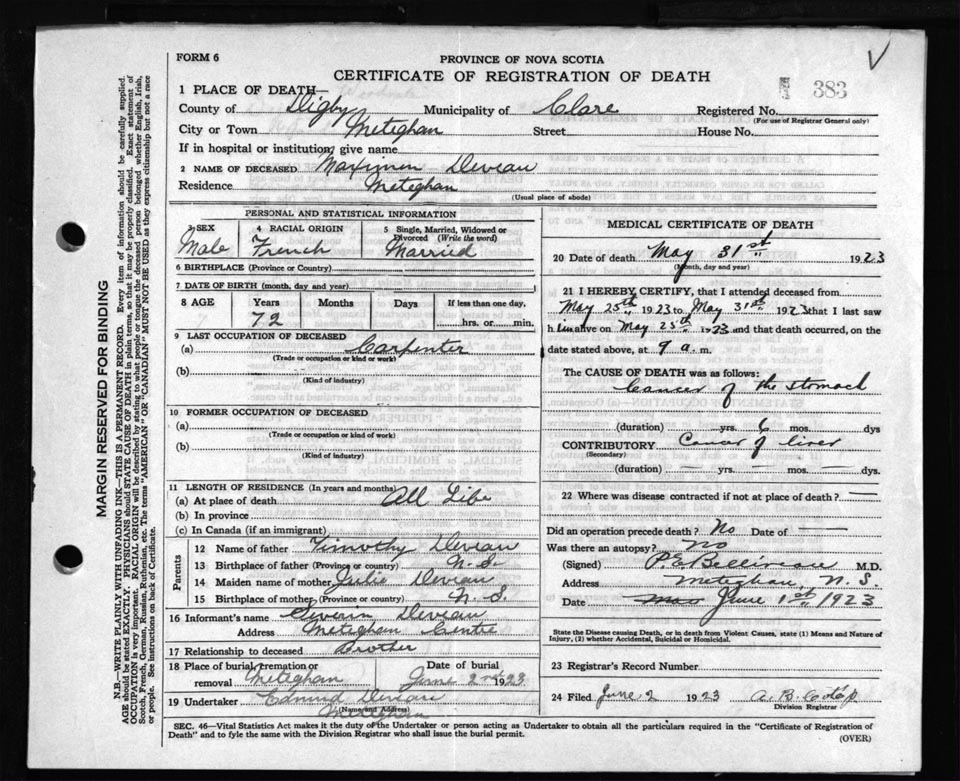 FORM 6
PROVINCE OF NOVA SCOTIA
CERTIFICATE OF REGISTRATION OF DEATH
383
1 PLACE OF DEATH—
County of Digby Municipality of Clare Registered No.
(For use of Registrar General only)
City or Town Meteghan Street House No.
If in hospital or institution, give name
2 NAME OF DECEASED Maximin Deveau
Residence Meteghan
(Usual place of abode)
PERSONAL AND STATISTICAL INFORMATION
3 SEX 4 RACIAL ORIGIN 5 Single, Married, Widowed or Divorced (Write the word)
Male French Married
6 BIRTHPLACE (Province or Country)
7 DATE OF BIRTH (month, day and year)
8 AGE Years Months Days If less than one day,
72 hrs. or min.
9 LAST OCCUPATION OF DECEASED
(a) Carpenter
(Trade or occupation or kind or work)
(b)
(Kind of industry)
10 FORMER OCCUPATION OF DECEASED
(a)
(Trade or occupation or kind of work)
(b)
(Kind of industry)
11 LENGTH OF RESIDENCE (In years and months)
(a) At place of death All Life
(b) In province
(c) In Canada (if an immigrant)
Parents
12 Name of father Timothy Deveau
13 Birthplace of father (Province or country) N.S.
14 Maiden name of mother Julie Deveau
15 Birthplace of mother (Province or country) N.S.
16 Informant's name Deveau
Address Meteghan Centre
17 Relationship to deceased Brother
18 Place of burial, cremation or removal Meteghan Date of burial June 2nd 1923
19 Undertaker Edmund Deveau
(Name and Address)
Meteghan
MEDICAL CERTIFICATE OF DEATH
20 Date of death May 31st 1923
(Month, day and year)
21 I HEREBY CERTIFY, that I attended deceased from
May 25th 1923 to May 31st 1923 that I last saw
him alive on May 25th 1923 and that death occurred, on the
date stated above, at 9 a.m.
The CAUSE OF DEATH was as follows:
Cancer of the stomach
(duration) yrs. 6 mos. dys
CONTRIBUTORY Cancer of liver
(Secondary)
(duration) — yrs. — mos. — dys.
22 Where was disease contracted if not at place of death? —
Did an operation precede death? No Date of —
Was there an autopsy? No
(Signed) P.E. Belliveau M.D.
Address Meteghan, N.S.
Date June 1st 1923
State the Disease causing Death, or in death from Violent Causes, state (1) Means and Nature of
Injury, (2) whether Accidental, Suicidal or Homicidal.
23 Registrar's Record Number
24 Filed June 2 1923
Division Registrar
SEC. 46—Vital Statistics Act makes it the duty of the Undertaker or person acting as Undertaker to obtain all the particulars required in the "Certificate of Registration of
Death" and to fyle the same with the Division Registrar who shall issue the burial permit.
(OVER)
MARGIN RESERVED FOR BINDING
N.B.—WRITE PLAINLY WITH UNFADING INK—THIS IS A PERMANENT RECORD. Every item of information should be carefully supplied.
AGE should be stated EXACTLY. PHYSICIANS should STATE CAUSE OF DEATH in plain terms, so that it may be properly classified. Exact statement of
OCCUPATION is very important. RACIAL ORIGIN will be described by stating to what people or tongue the deceased person belonged whether English, Irish,
Scotch, French, German, Russian, Ruthenian, etc. The terms "AMERICAN" OR "CANADIAN" MUST NOT BE USED as they express citizenship but not a race
or people. See instructions on back of Certificate.